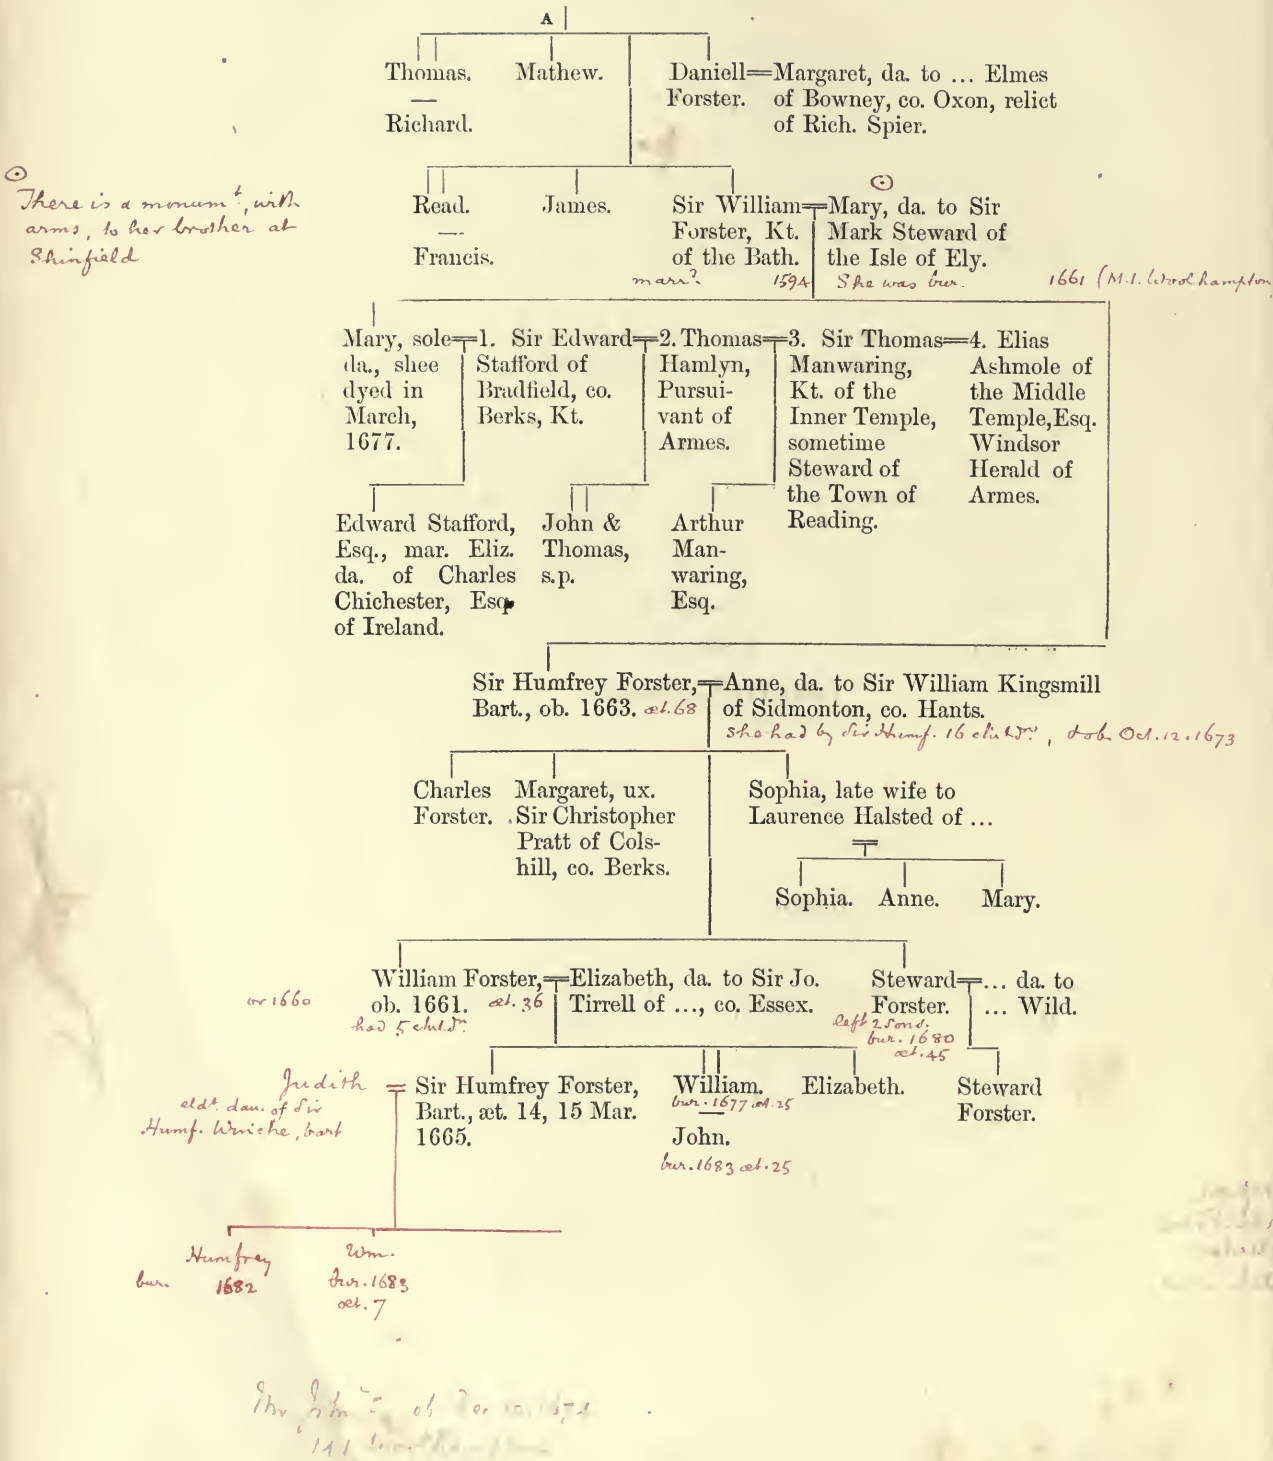 A
Thomas.
—
Richard.
Mathew.
Daniell=Margaret, da. to ... Elmes
Forster. of Bowney, co. Oxon, relict
of Rich. Spier.
⊙
There is a monumt, with
arms, to her brother at
Shinfield
Read.
—
Francis.
James.
Sir William=
Forster, Kt.
of the Bath.
marrd 1594
⊙
Mary, da. to Sir
Mark Steward of
the Isle of Ely.
She was bur. 1661 (M.I. Woolhampton
Mary, sole=
da., shee
dyed in
March,
1677.
1. Sir Edward=
Stafford of
Bradfield, co.
Berks, Kt.
2. Thomas=
Hamlyn,
Pursui-
vant of
Armes.
3. Sir Thomas=
Manwaring,
Kt. of the
Inner Temple,
sometime
Steward of
the Town of
Reading.
4. Elias
Ashmole of
the Middle
Temple, Esq.
Windsor
Herald of
Armes.
Edward Stafford,
Esq., mar. Eliz.
da. of Charles
Chichester, Esq.
of Ireland.
John &
Thomas,
s.p.
Arthur
Man-
waring,
Esq.
Sir Humfrey Forster,=Anne, da. to Sir William Kingsmill
Bart., ob. 1663. æt. 68 of Sidmonton, co. Hants.
She had by Sir Humf. 16 childrn, & ob. Oct. 12. 1673
Charles
Forster.
Margaret, ux.
Sir Christopher
Pratt of Cols-
hill, co. Berks.
Sophia, late wife to
Laurence Halsted of ...
Sophia. Anne. Mary.
William Forster,=Elizabeth, da. to Sir Jo.
or 1660 ob. 1661. æt. 36 Tirrell of ..., co. Essex.
had 5 childrn
Steward=... da. to
Forster. ... Wild.
left 2 sons.
bur. 1680
æt. 45
Judith =
eldt. dau. of Sir
Humf. Winche, bart
Sir Humfrey Forster,
Bart., æt. 14, 15 Mar.
1665.
William.
bur. 1677 æt. 25
—
John.
bur. 1683 æt. 25
Elizabeth.
Steward
Forster.
Humfrey
bur. 1682
Wm.
bur. 1683
æt. 7